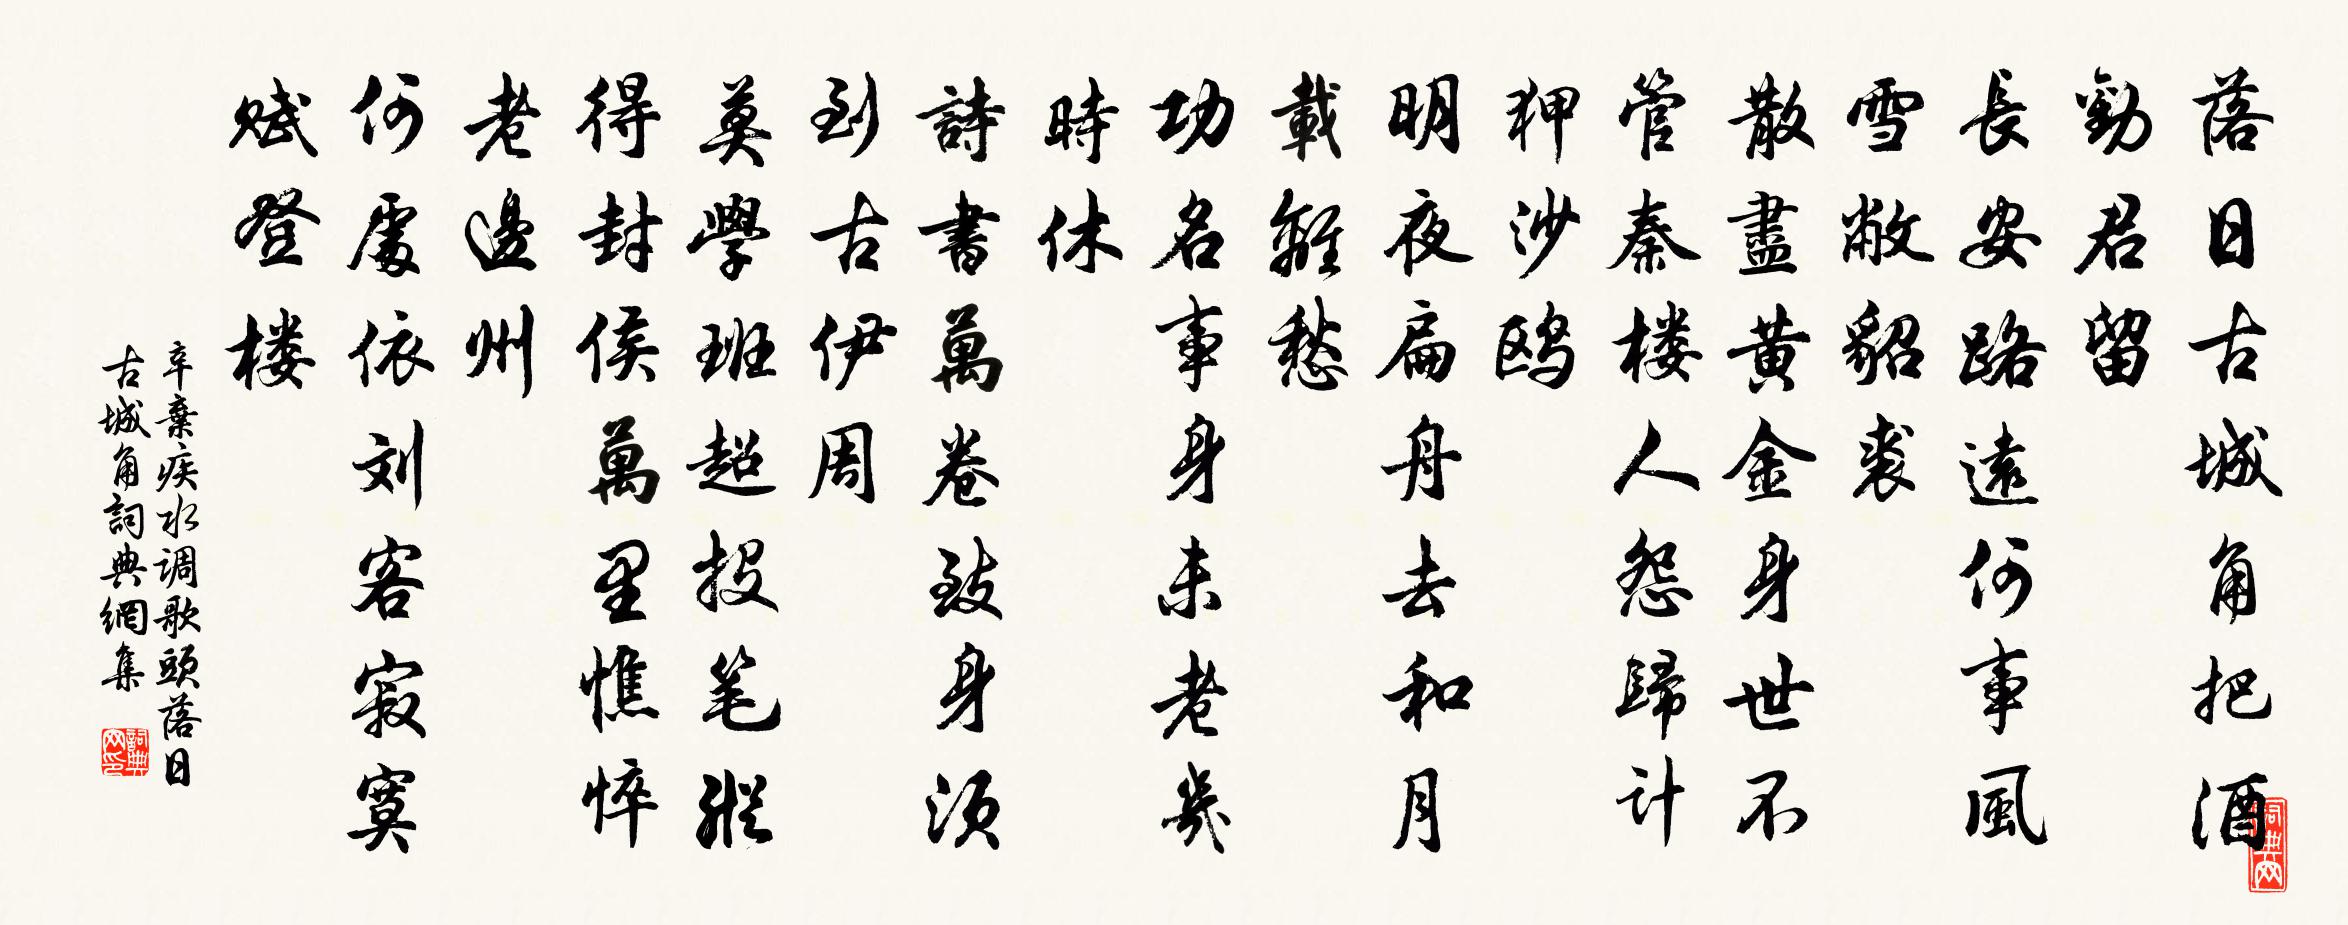 落日古城角把酒
勸君留
長安路遠何事風
雪敝貂裘
散盡黄金身世不
管秦楼人怨歸计
狎沙鸥
明夜扁舟去和月
載離愁
功名事身未老幾
時休
詩書萬卷致身須
到古伊周
莫學班超投笔縱
得封侯萬里憔悴
老邊州
何處依刘客寂寞
赋登楼
辛棄疾水调歌頭落日
古城角詞典網集
詞典网印
词典网